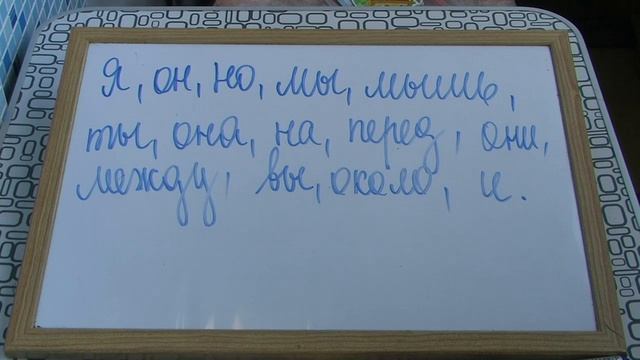 Я, он, но, мы, мышь,
ты, она, на, перед, они,
между, вы, около, и.